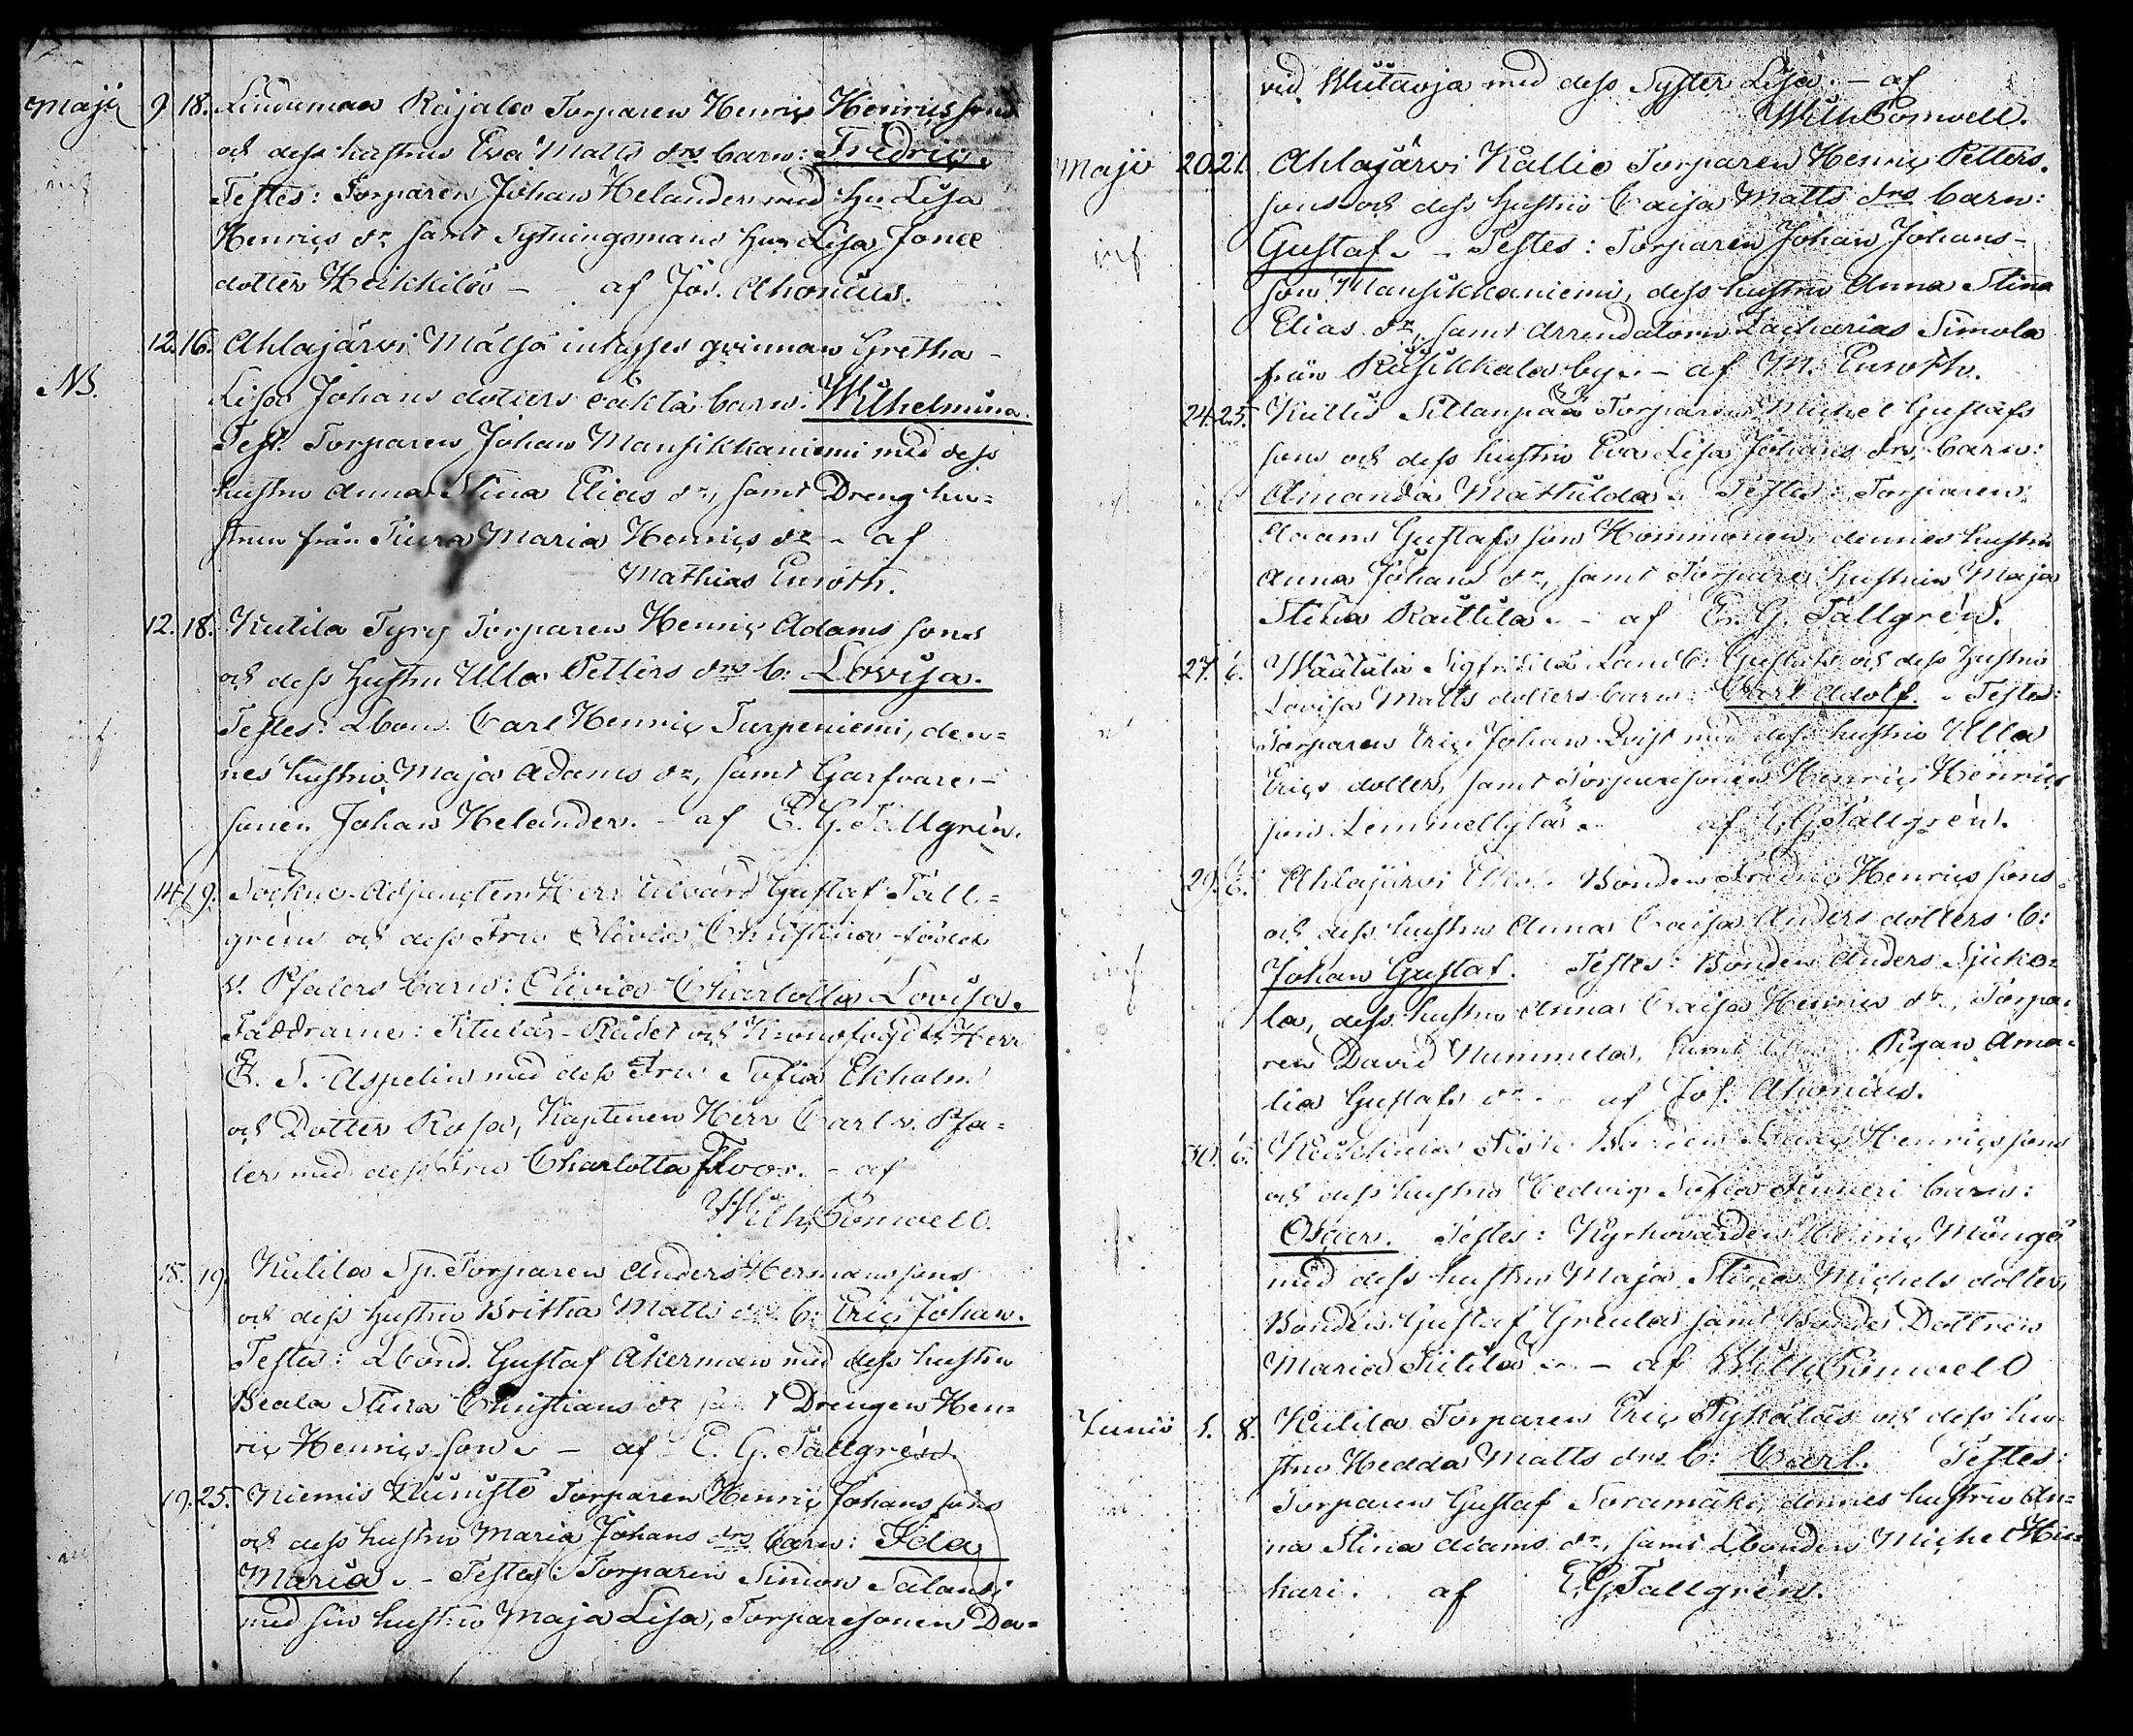 Maji 9 18. Linduman Rajala Torparen Henric Henricssons
och dess hustru Eva Matts drs barn: Fredric.
Testes: Torparen Johan Helander med hu Lisa
Henrics dr samt Sytningsmans hu Lisa
dotter Heikkilä – af Jos. Ahonius.
12. 16. Ahlajärvi Mälsä inhyses qvinnan Gretha
NB. Lisa Johans dotters oäkta barn: Wilhelmina.
Test. Torparen Johan Mansikkaniemi med dess
hustru Anna Stina Elias dr, samt Dreng hu=
strun från Tiura Maria Henrics dr – af
Mathias Euroth.
12. 18. Kutila Torparen Henric Adams sons
och dess hustru Ulla Petters drs b: Lovisa.
Testes: Lbon. Carl Henric Turpeniemi, den=
nes hustru Maja Adams dr, samt Garfvare-
sonen Johan Helander. – af E. G. Tallgrén.
14. 19. Sockne-Adjuncten Herr Edvard Gustaf Tall=
gréns och dess Fru Olivia Christina födde
v. Pfalers barn: Olivia Charlotta Lovisa.
Faddrarne: Titulär-Rådet och Kronofogden Herr
E. S. Aspelin med dess Fru Sofia Ekholm
och Dotter Rosa, Kaptenen Herr Carl v. Pfa=
ler med dess Fru Charlotta Floor. – af
Wilh. Bonwell.
18. 19. Kutila Sp. Torparen Anders Hermanssons
och dess hustru Britha Matts drs b: Eric Johan.
Testes: Lbond. Gustaf Åkerman med dess hustru
Beata Stina Christians dr samt Drengen Hen=
ric Henricsson – af E. G. Tallgrén.
19. 25. Niemis Torparen Henric Johans sons
och dess hustru Maria Johans drs barn: Ida
Maria. – Testes: Torparen Simon Salansi
med sin hustru Maja Lisa, Torparesonen Da=
vid med dess Syster Lisa. – af
Wilh Bonwell.
Maji 20. 21. Ahlajärvi Kallio Torparen Henric Petters.
sons och dess hustru Caisa Matts drs barn:
Gustaf. – Testes: Torparen Johan Johans-
son Mansikkaniemi, dess hustru Anna Stina
Elias dr, samt Arrendatorn Zacharias Simola
från by. – af M. Euroth.
24. 25. Kutis Sillanpää Torparen Michel Gustafs
sons och dess hustru Eva Lisa Johans drs barn:
Amanda Mathilda. Testes: Torparen
Adam Gustafsson Hommanen, dennes hustru
Anna Johans dr, samt Torpare hustrun Maja
Stina Raittila. – af E. G. Tallgrén.
27. 6. Wäätälä Sigfridilä Landb: Gustafs och dess hustru
Lovisa Matts dotters barn: Carl Adolf. Testes:
Torparen Eric Johan Qvist med dess hustru Ulla
Erics dotter, samt Torparesonen Henric Henrics
son Lemmettylä. af E G Tallgrén.
29. 6. Ahlajärvi Bonden Fredric Henrics sons
och dess hustru Anna Caisa Anders dotters b:
Johan Gustaf. Testes: Bonden Anders
la, dess hustru Anna Caisa Henrics dr, Torpa=
ren David Nummela, samt Pigan Ama=
lia Gustafs dr – af Jos. Ahonius.
30. 6. Bonden Henricssons
och dess hustru Hedvig Sofia barn:
Oscar. Testes: Kyrkovärden Henric
med dess hustru Maja Stina Michels dotter,
Bonden Gustaf Greula samt Bonde Dottren
Maria – af Wilh Bonwell
Junii 1. 8. Kutila Torparen Eric och dess hu=
stru Hedda Matts drs b: Carl. Testes:
Torparen Gustaf Soramäki, dennes hustru An=
na Stina Adams dr, samt Lbonden Michel Hin=
kari. af E. G. Tallgrén.